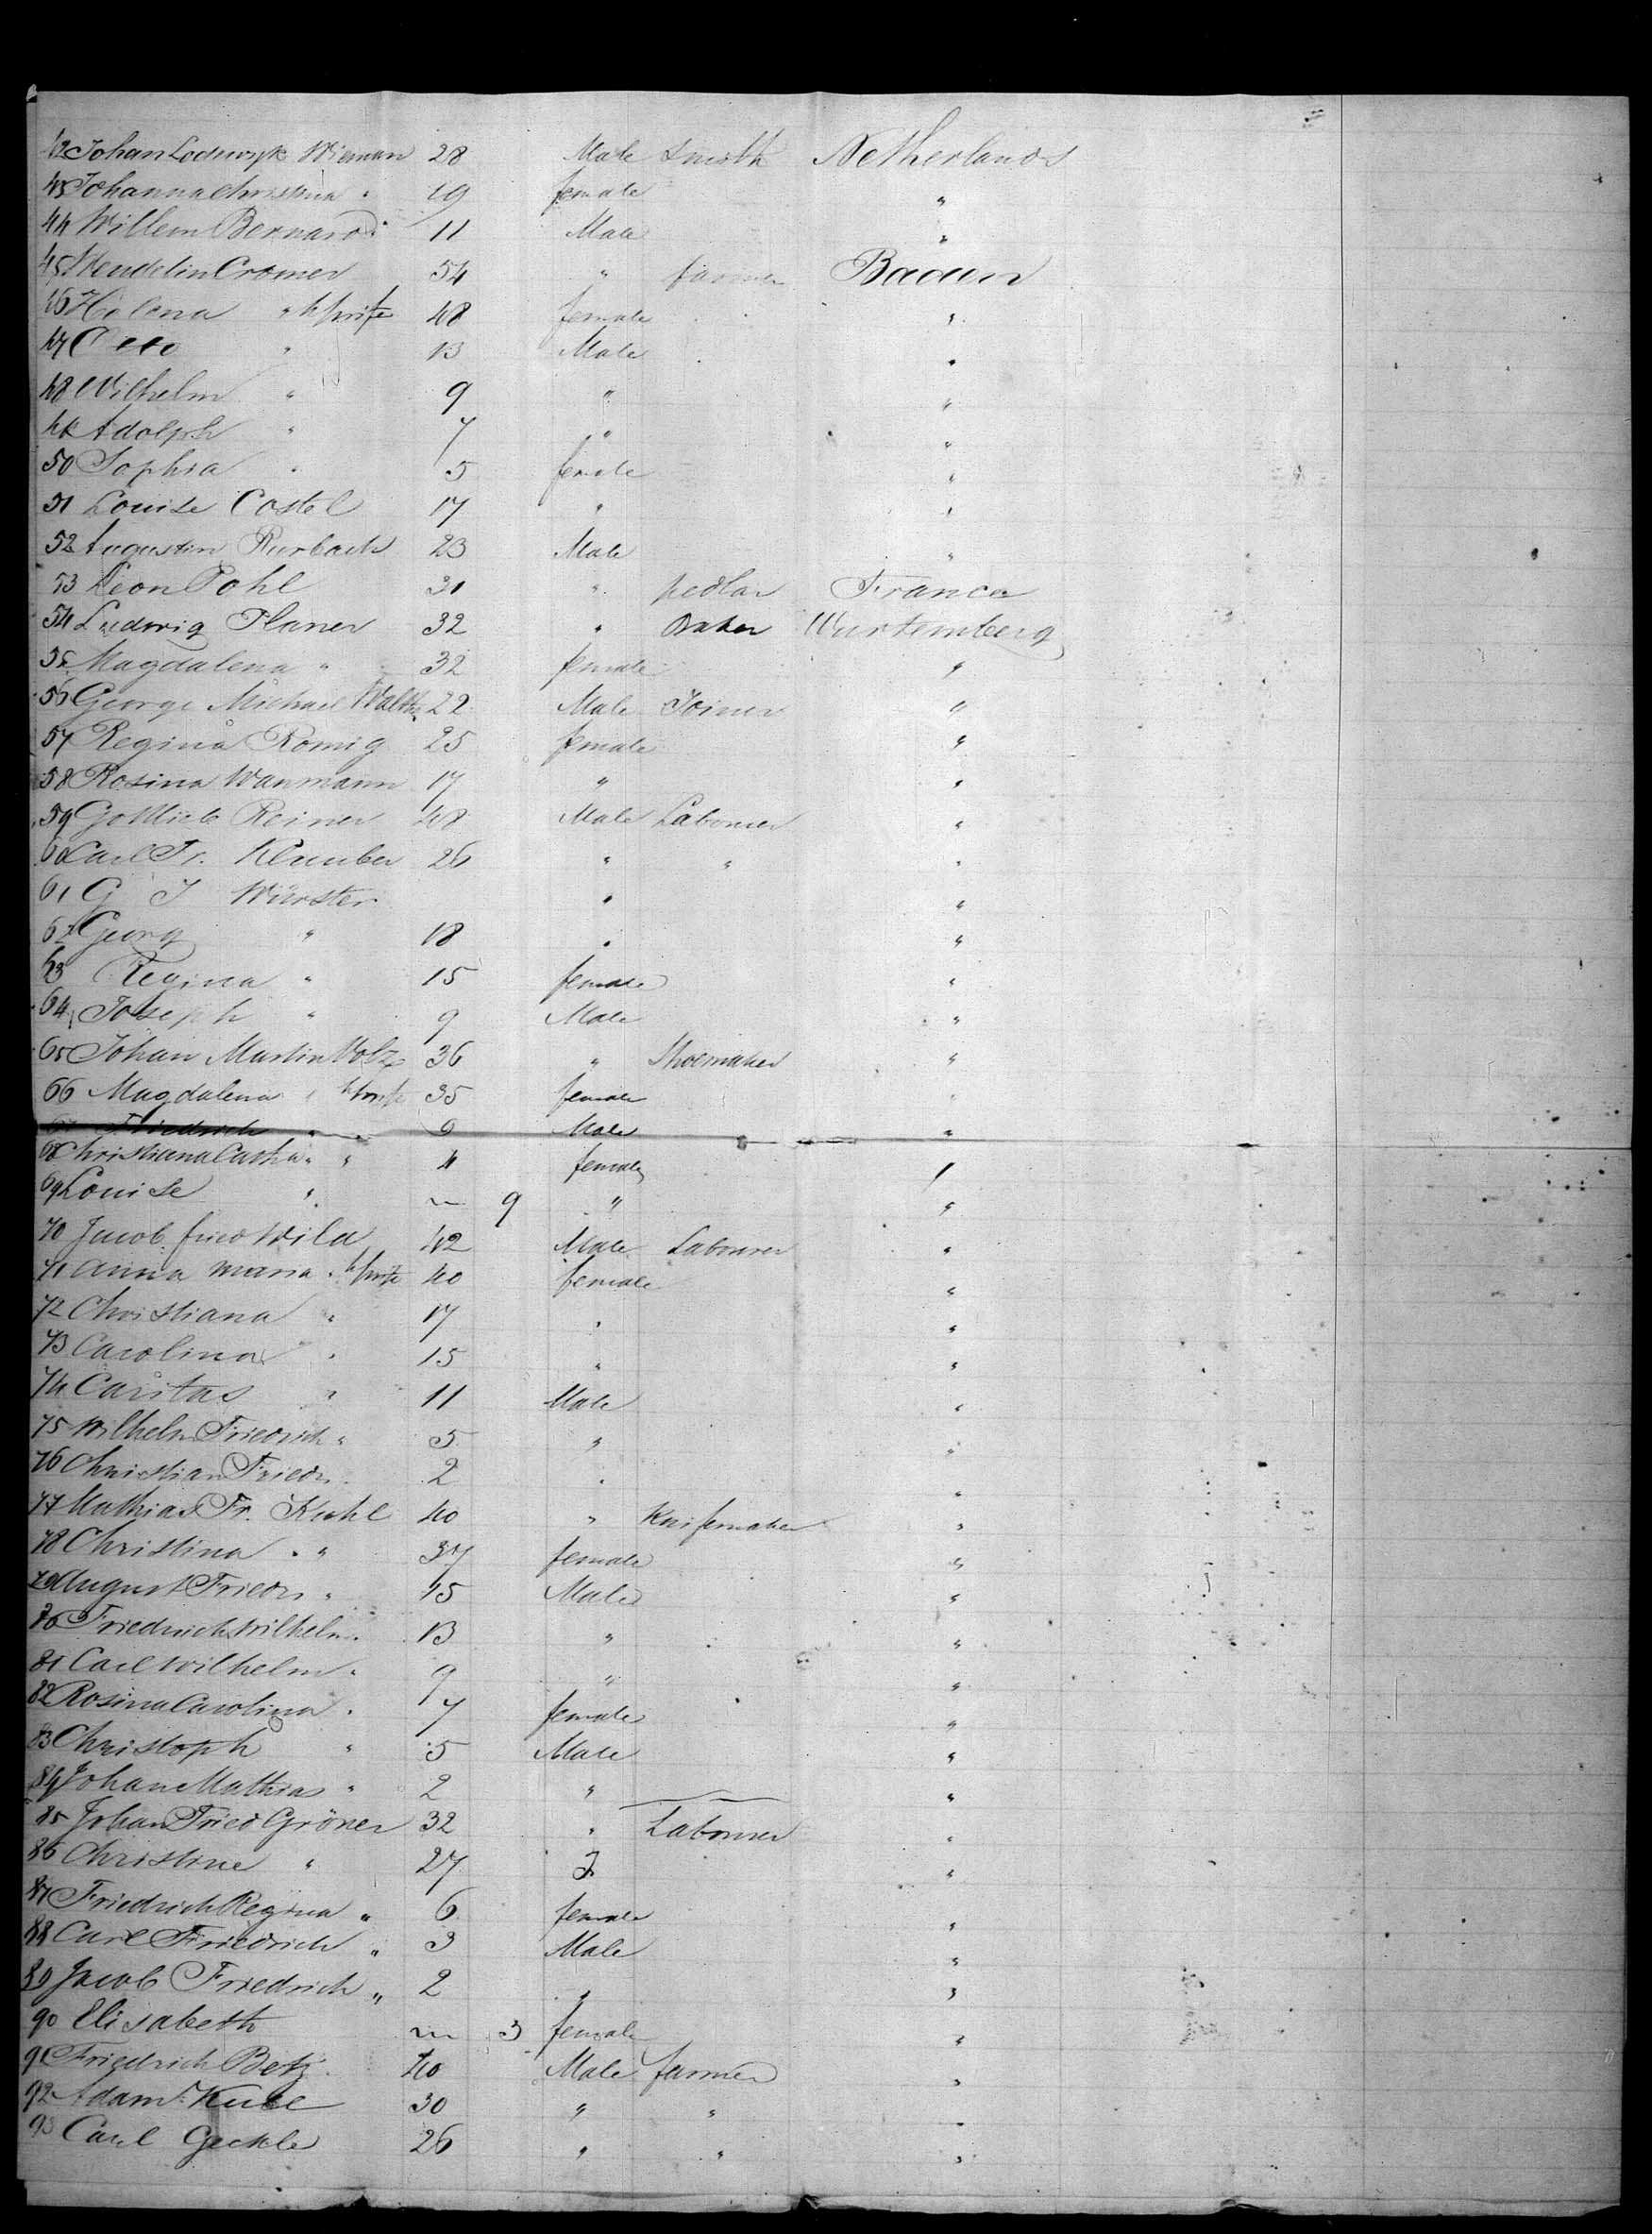 42 Johan Lodewyk Wieman 28 Male Smith Netherlands
43 Johanna Christina " 19 female "
44 Willem Bernard " 11 Male "
45 Wendelin Cromer 54 " farmer Baden
46 Helena " h/wife 48 female "
47 Otto " 13 Male "
48 Wilhelm " 9 " "
49 Adolph " 7 " "
50 Sophia " 5 female "
51 Louise Costel 17 " "
52 Augustin Rurbach 23 Male "
53 Leon Pohl 31 " pedlar France
54 Ludwig Planer 32 " Baker Wurtemberg
55 Magdalena " 32 female "
56 George Michael Walth 22 Male Joiner "
57 Regina Romig 25 female "
58 Rosina Wanmann 17 " "
59 Gottlieb Reiner 48 Male Labourer "
60 Carl Fr. Klumber 26 " " "
61 G J Würster " "
62 Georg " 18 " "
63 Regina " 15 female "
64 Joseph " 9 Male "
65 Johan Martin Volz 36 " Shoemaker "
66 Magdalena " h/wife 35 female "
67 Friedrich " 6 Male "
68 Christiana Catha " " 4 female "
69 Louise " ~ 9 " "
70 Jacob fried Wild 42 Male Labourer "
71 Anna Maria " h/wife 40 female "
72 Christiana " 17 " "
73 Carolina " 15 " "
74 Caritas " 11 Male "
75 Wilhelm Friedrich " 5 " "
76 Christian Friedr 2 " "
77 Mathias Fr. Kuhl 40 " Knifemaker "
78 Christina " " 37 female "
79 August Friedr " 15 Male "
80 Friedrich Wilhelm " 13 " "
81 Carl Wilhelm " 9 " "
82 Rosina Carolina " 7 female "
83 Christoph " 5 Male "
84 Johan Mathias " 2 " "
85 Johan Fried Gröner 32 " Labourer "
86 Christine " 27 F "
87 Friedrich Regina " 6 female "
88 Carl Friedrich " 3 Male "
89 Jacob Friedrich " 2 " "
90 Elisabeth ~ 3 female "
91 Friedrich Betz 40 Male farmer "
92 Adam Kull 30 " " "
93 Carl Geckle 26 " " "